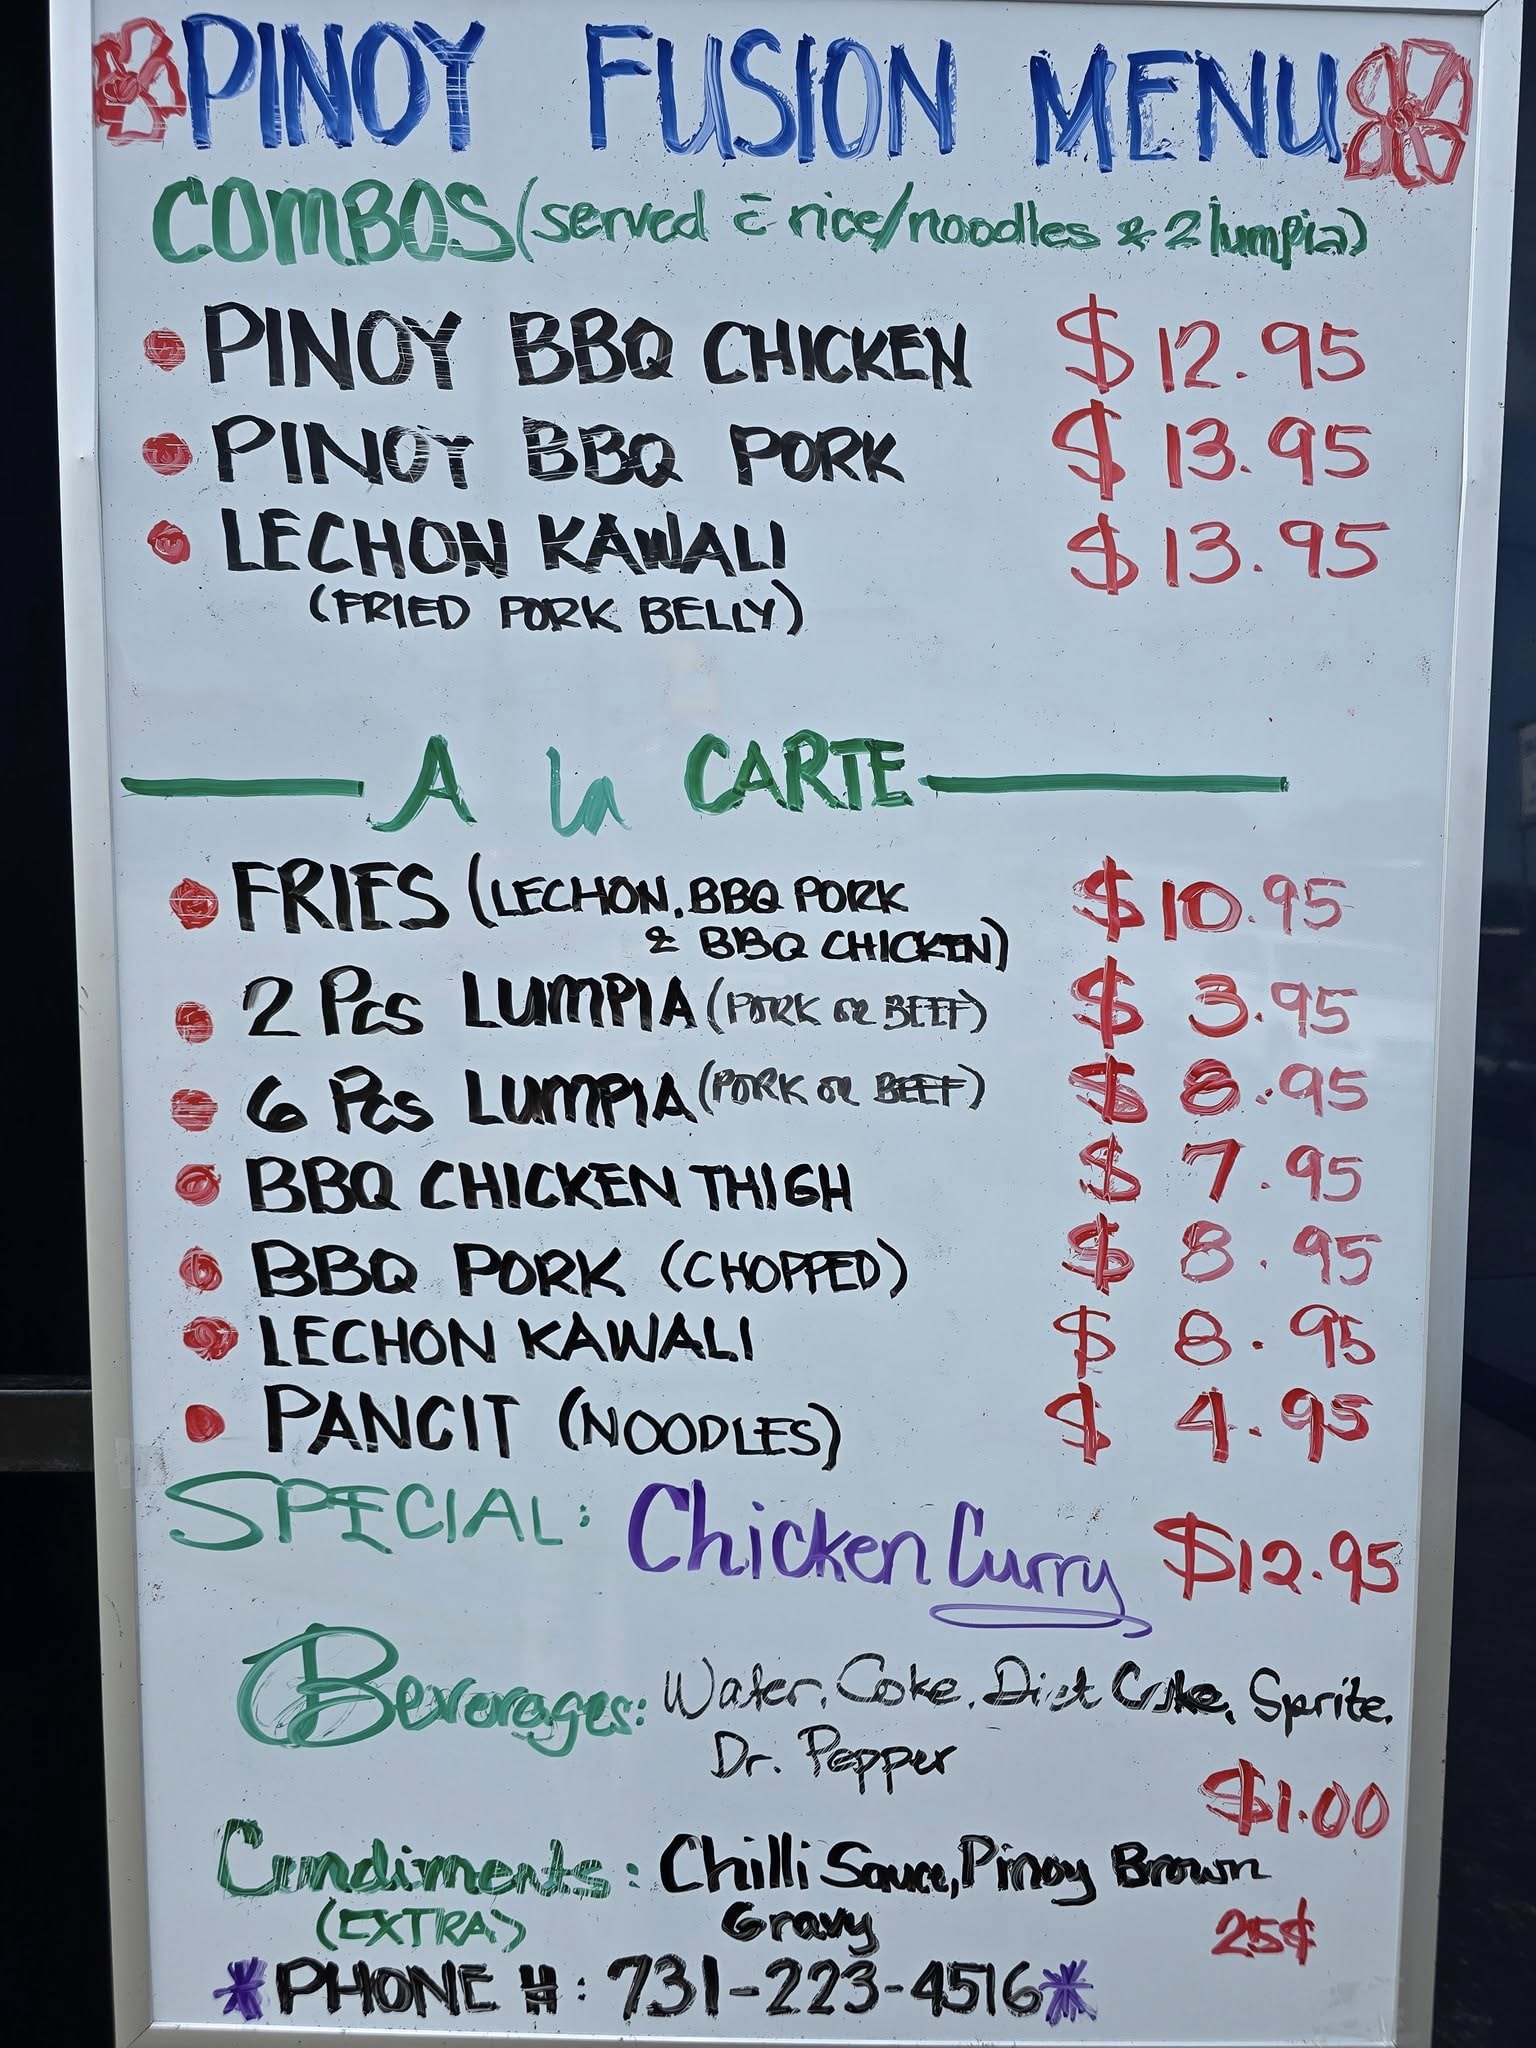 PINOY FUSION MENU
COMBOS (served c̄ rice/noodles & 2 lumpia)
PINOY BBQ CHICKEN $12.95
PINOY BBQ PORK $13.95
LECHON KAWALI $13.95
(FRIED PORK BELLY)
A la CARTE
FRIES (LECHON, BBQ PORK $10.95
& BBQ CHICKEN)
2 Pcs LUMPIA (PORK OR BEEF) $3.95
6 Pcs LUMPIA (PORK OR BEEF) $8.95
BBQ CHICKEN THIGH $7.95
BBQ PORK (CHOPPED) $8.95
LECHON KAWALI $8.95
PANCIT (NOODLES) $4.95
SPECIAL: Chicken Curry $12.95
Beverages: Water, Coke, Diet Coke, Sprite,
Dr. Pepper
$1.00
Condiments: Chilli Sauce, Pinoy Brown
(EXTRA) Gravy 25¢
*PHONE #: 731-223-4516*